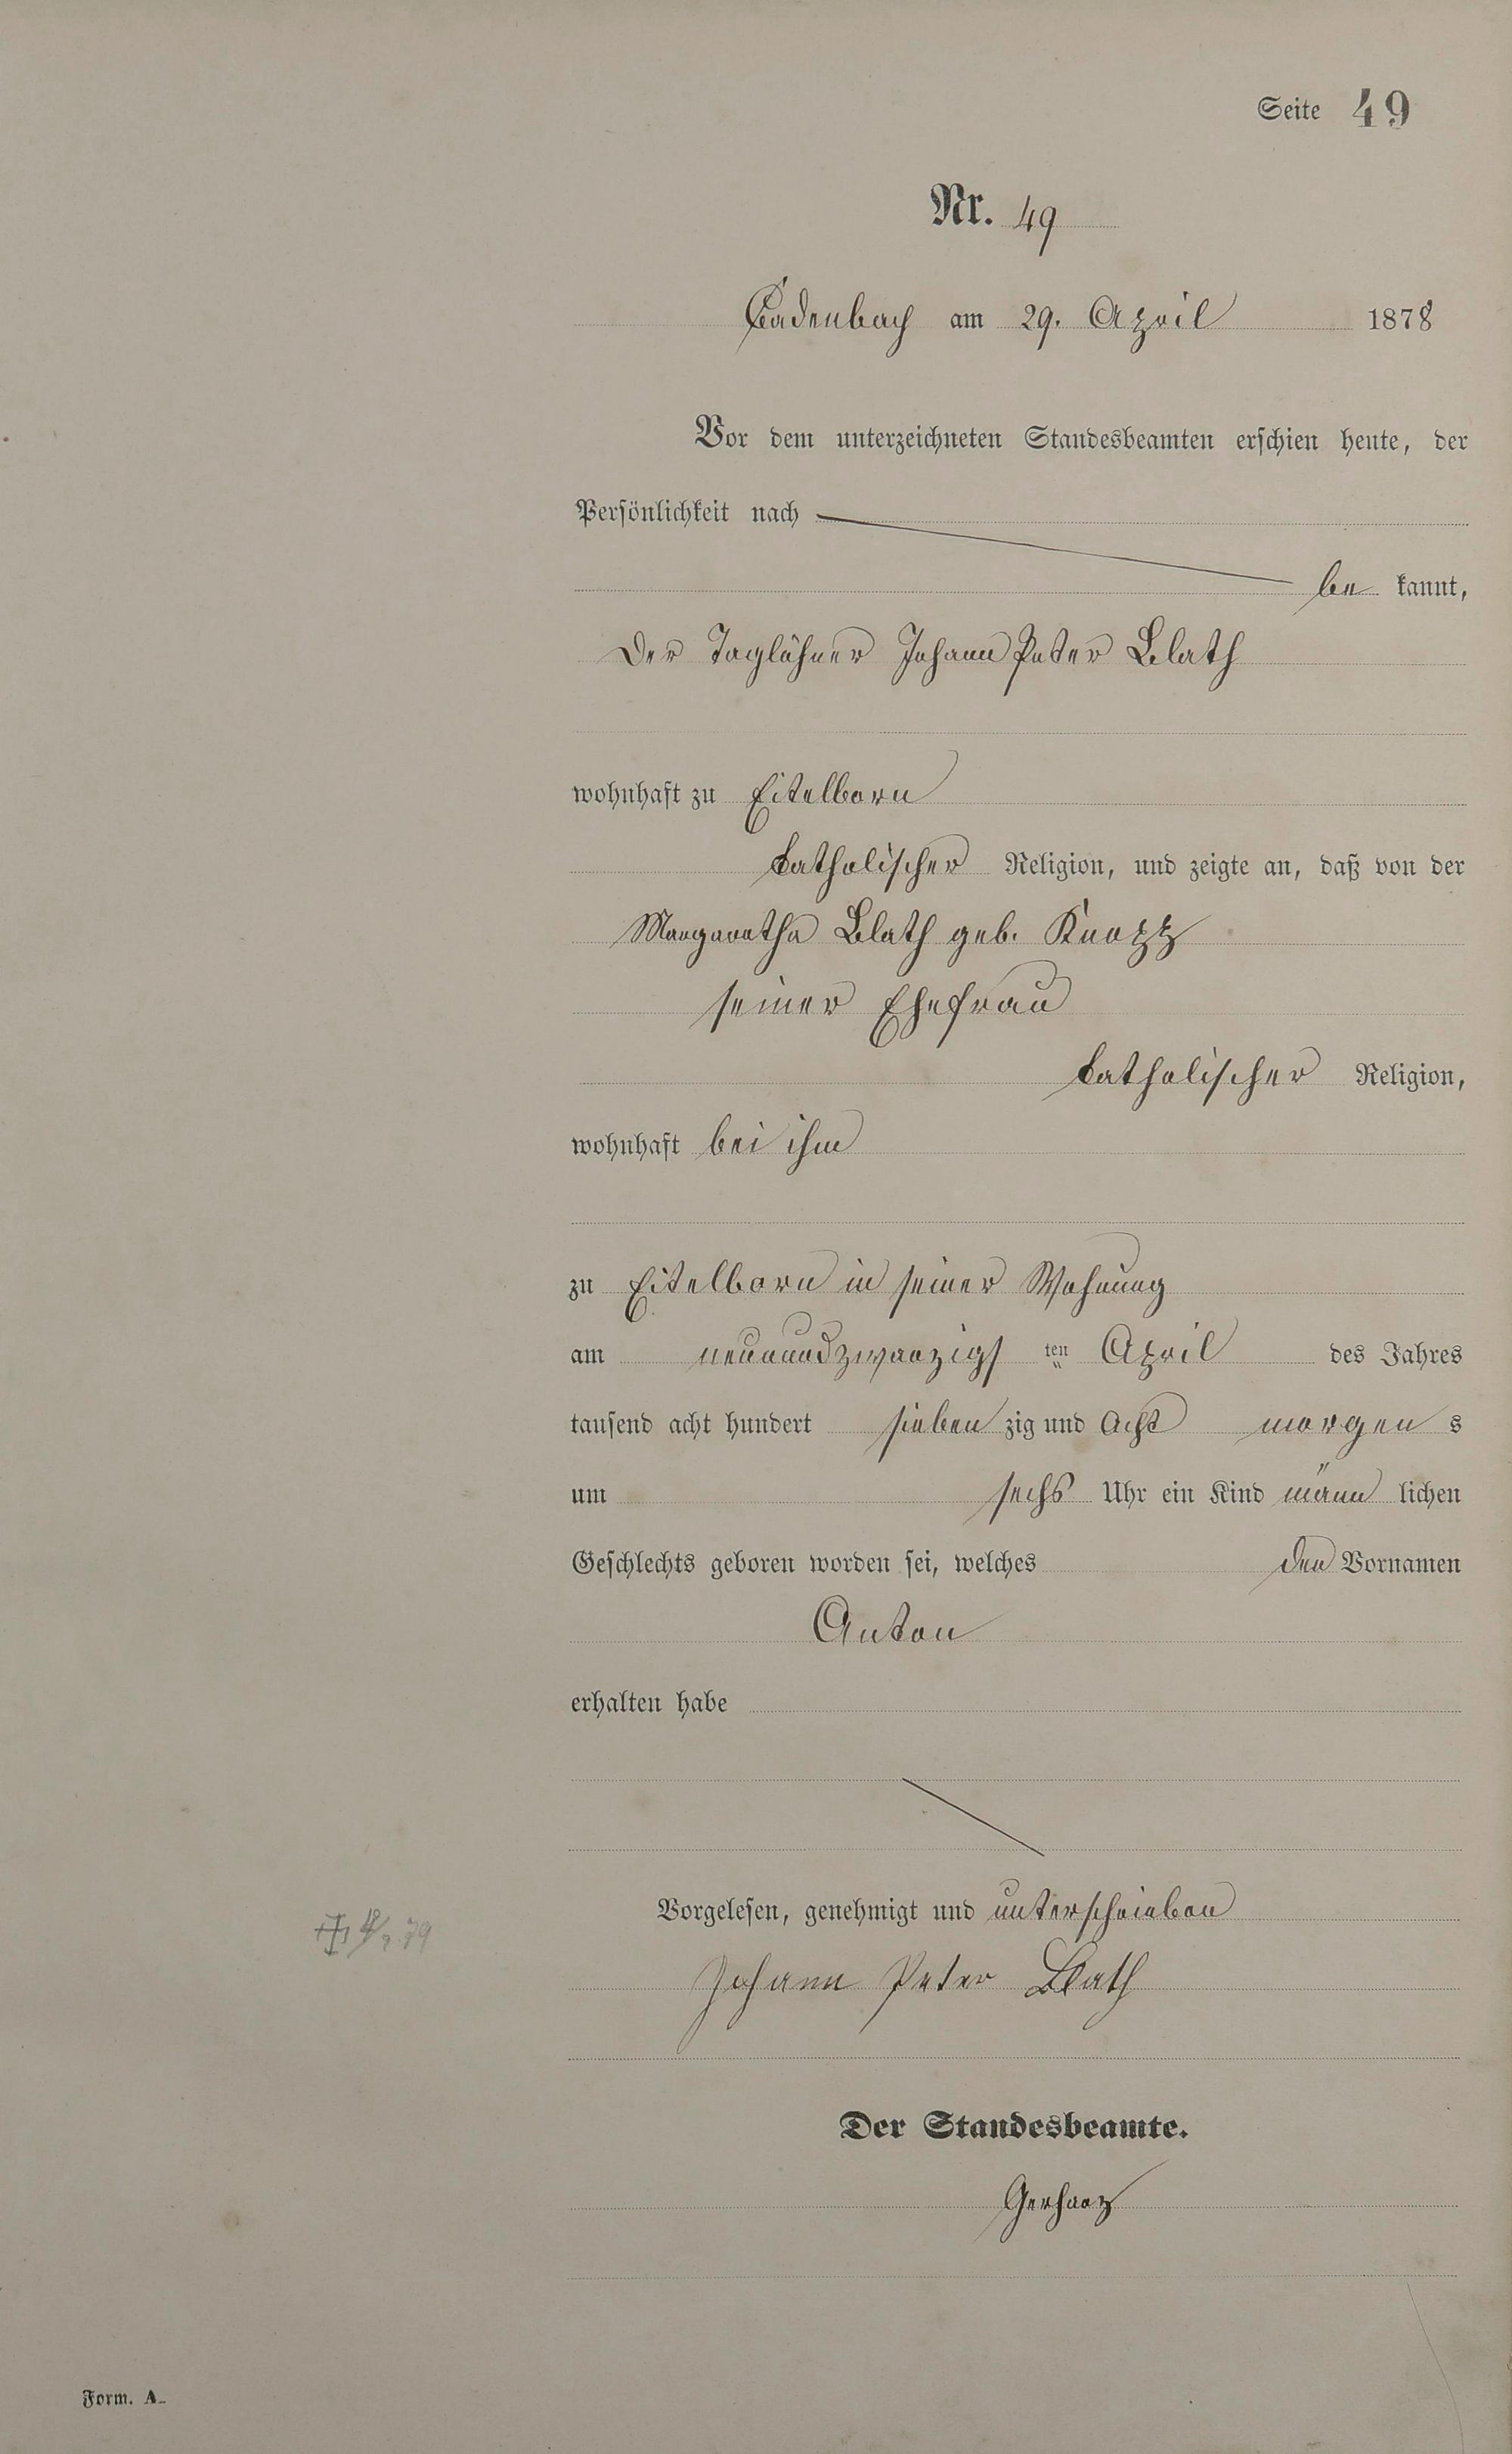 Seite 49
Nr. 49
Cadenbach am 29. April 1878
Vor dem unterzeichneten Standesbeamten erschien heute, der
Persönlichkeit nach
be kannt,
der Taglöhner Johann Peter Blath
wohnhaft zu Eitelborn
katholischer Religion, und zeigte an, daß von der
Margaretha Blath geb. Knopp
seiner Ehefrau
katholischer Religion,
wohnhaft bei ihm
zu Eitelborn in seiner Wohnung
am neunundzwanzigs ten April des Jahres
tausend acht hundert sieben zig und Acht morgen s
um sechs Uhr ein Kind männ lichen
Geschlechts geboren worden sei, welches den Vornamen
Anton
erhalten habe
Vorgelesen, genehmigt und unterschrieben
Johann Peter Blath
Der Standesbeamte.
Gerharz
Form. A.